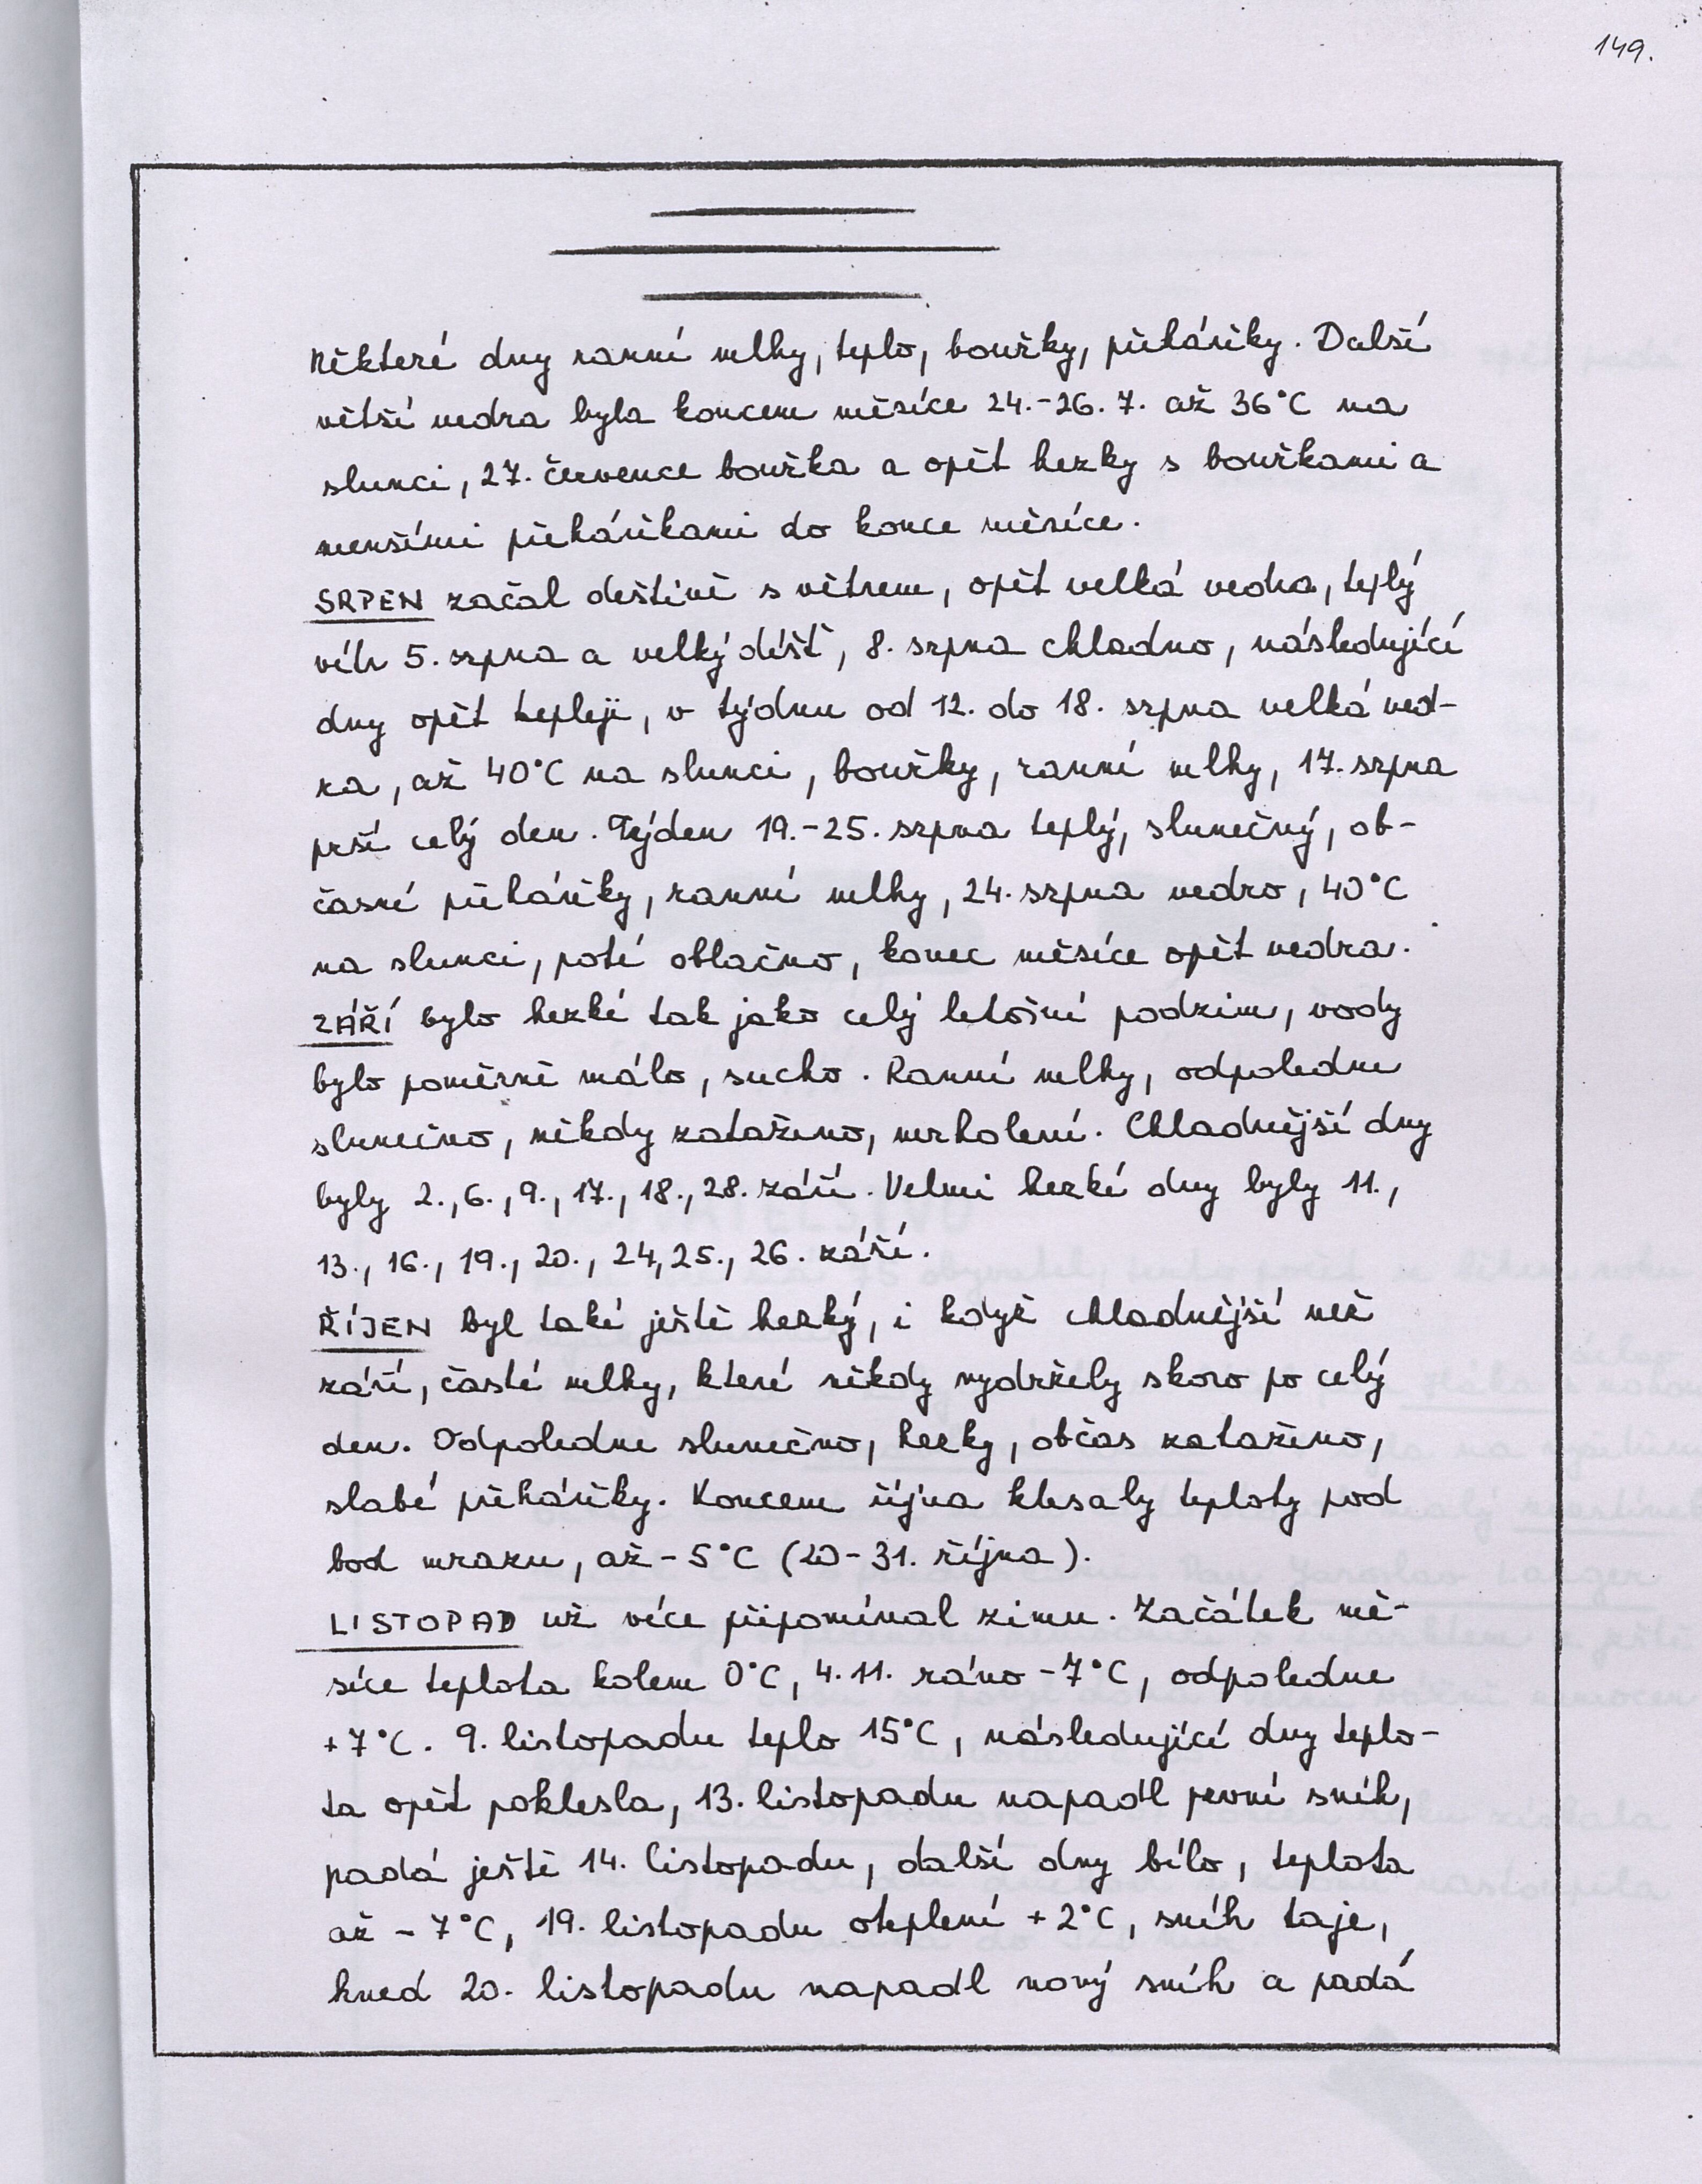 149.
Některé dny ranní mlhy, teplo, bouřky, přeháňky. Další
větší vedra byla koncem měsíce 24.-26. 7. až 36°C na
slunci, 27. července bouřka a opět hezky s bouřkami a
menšími přeháňkami do konce měsíce.
SRPEN začal deštivě s větrem, opět velká vedra, teplý
vítr 5. srpna a velký déšť, 8. srpna chladno, následující
dny opět tepleji, v týdnu od 12. do 18. srpna velká ved-
ra, až 40°C na slunci, bouřky, ranní mlhy, 17. srpna
prší celý den. Týden 19.-25. srpna teplý, slunečný, ob-
časné přeháňky, ranní mlhy, 24. srpna vedro, 40°C
na slunci, poté oblačno, konec měsíce opět vedra.
ZÁŘÍ bylo hezké tak jako celý letošní podzim, vody
bylo poměrně málo, sucho. Ranní mlhy, odpoledne
slunečno, někdy zataženo, mrholení. Chladnější dny
byly 2., 6., 9., 17., 18., 28. září. Velmi hezké dny byly 11.,
13., 16., 19., 20., 24, 25., 26. září.
ŘÍJEN byl také ještě hezký, i když chladnější než
září, časté mlhy, které někdy vydržely skoro po celý
den. Odpoledne slunečno, hezky, občas zataženo,
slabé přeháňky. Koncem října klesaly teploty pod
bod mrazu, až -5°C (20-31. října).
LISTOPAD už více připomínal zimu. Začátek mě-
síce teplota kolem 0°C, 4. 11. ráno -7°C, odpoledne
+7°C. 9. listopadu teplo 15°C, následující dny teplo-
ta opět poklesla, 13. listopadu napadl první sníh,
padá ještě 14. listopadu, další dny bílo, teplota
až -7°C, 19. listopadu oteplení +2°C, sníh taje,
hned 20. listopadu napadl nový sníh a padá